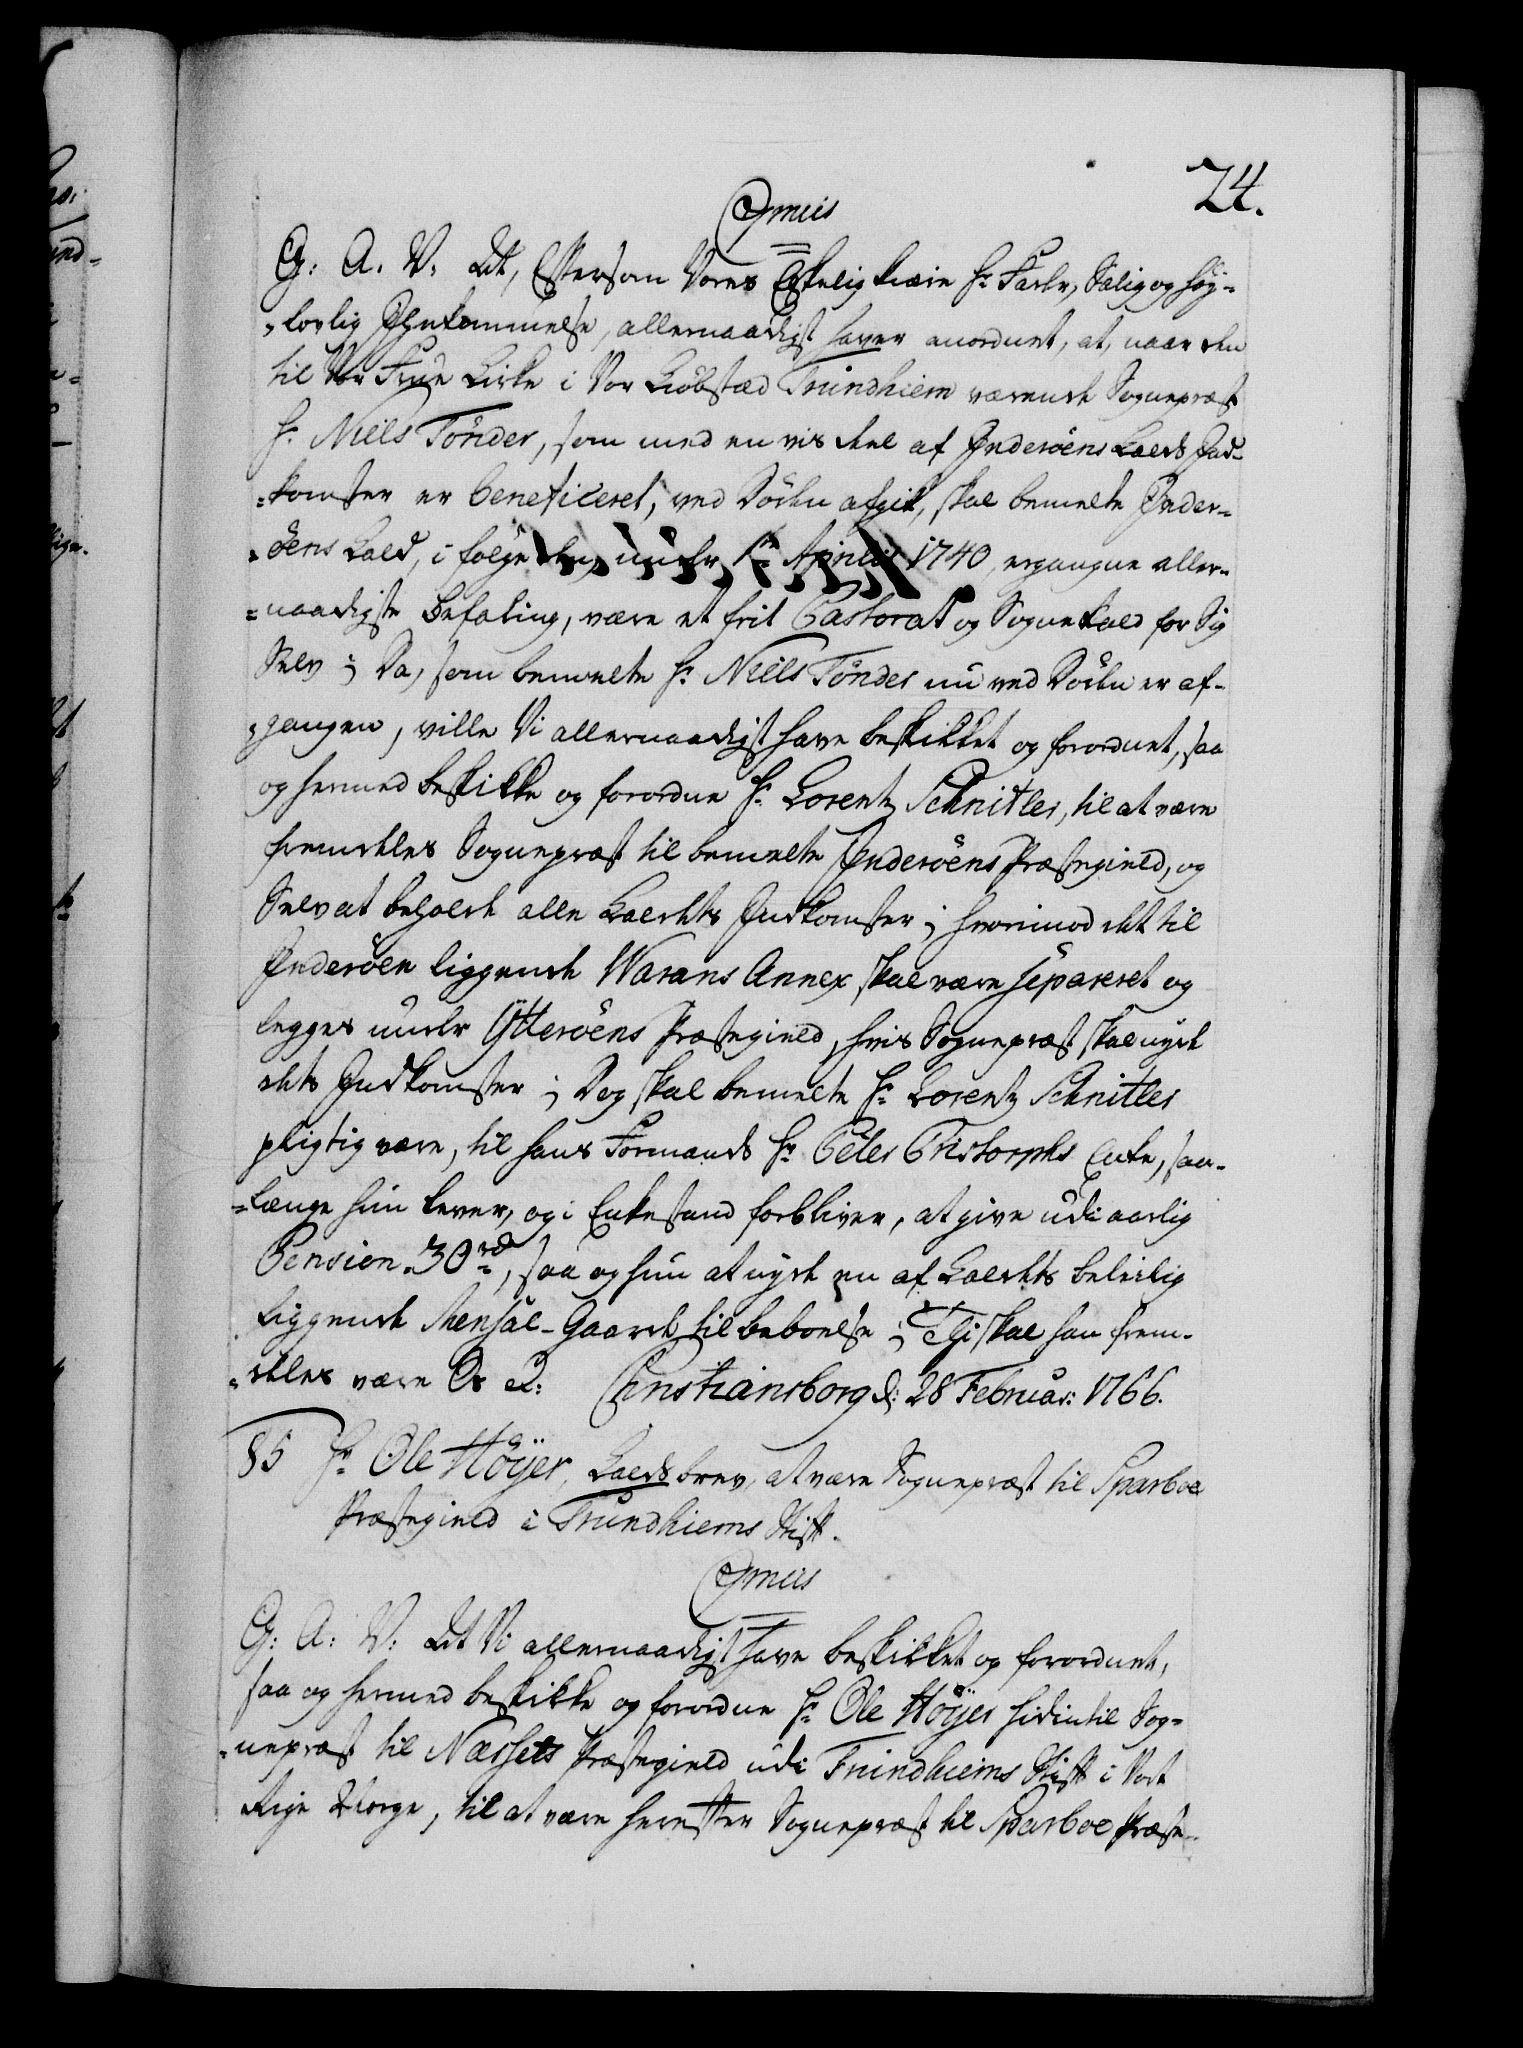 24.
Gmeis
G: A. V: Ldt, Eftersom Vores Elskelig kiære Hr. Fader, Salig og høy-
-lovlig Ihukommelse, allernaadigst haver anordnet, at, naar den
til Vor Frue Kirke i Vor Kiøbstæd Trundhiem værende Sognepræst
Hr. Niels Tönder, som med en vis deel af Inderöens Kalds Ind-
-komster er beneficeret, ved Döden afgik, skal bemelte Inder-
-öens Kald, i følge den, under 1te Aprilis 1740, ergangne aller-
-naadigste Befaling, være et frit Pastorat og Sognekald for Sig
Selv; Da, som bemelte Hr. Niels Tönder nu ved Döden er af-
-gangen, ville Vi allernaadigst have beskikket og forordnet, saa
og hermed beskikke og forordne Hr. Lorentz Schnitler, til at være
fremdeles Sognepræst til bemelte Inderöens Præstegield, og
Selv at beholde alle Kaldets Indkomster; hvorimod det til
Inderöen liggende Warans Annex skal være separeret og
legges under Ytteröens Præstegield, hvis Sognepræst skal nyde
dets Indkomster; Dog skal bemelte Hr. Lorentz Schnitler
pligtig være, til hans Formands Hr. Peter Tristorphs Enke, saa-
-længe hun lever, og i Enkestand forbliver, at give udi aarlig
Pension 30 rd, saa og hun at nyde en af Kaldets beleilig
liggende Mensal-Gaarde til beboelse; Thi skal han frem-
-deles være Os &: Christiansborg d: 28 Februar: 1766.
85 Hr. Ole Höyer, Kaldsbrev, at være Sognepræst til Sparboe
Præstegield i Trundhiems Stift.
Gmeis
G: A: V: Ldt Vi allernaadigst have beskikket og forordnet,
saa og hermed beskikke og forordne Hr. Ole Höyer hidintil Sog-
-nepræst til Næssets Præstegield udi Trundhiems Stift i Vort
Rige Norge, til at være herefter Sognepræst til Sparboe Præste-